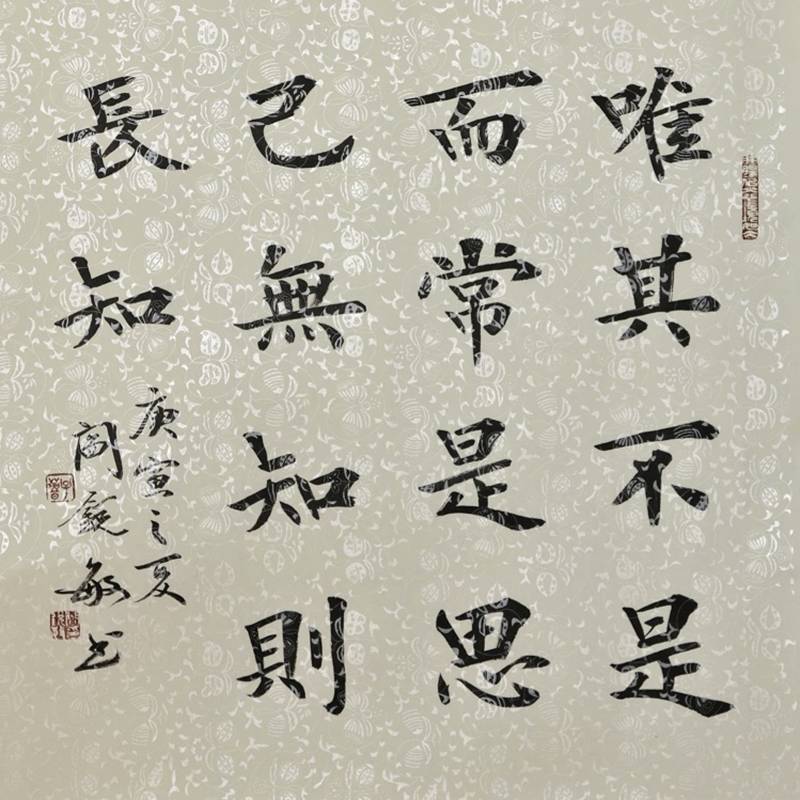 唯其不是
而常是思
己無知則
長知
庚寅之夏
闵銳敏书